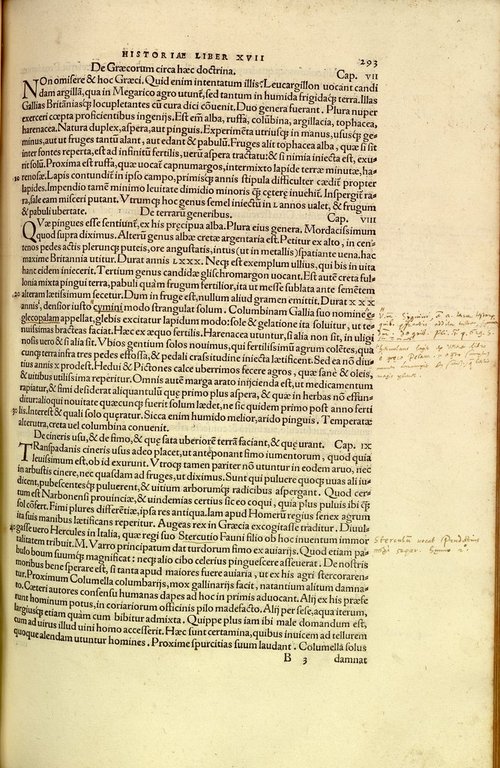 HISTORIAE LIBER XVII
293
De Græcorum circa hæc doctrina. Cap. VII
NOn omisere & hoc Græci. Quid enim intentatum illis? Leucargillon uocant candi
dam argillã, qua in Megarico agro utunť, sed tantum in humida frigidaq; terra. Illas
Gallias Britãniasq; locupletantes cũ cura dici cõuenit. Duo genera fuerant. Plura nuper
exerceri cœpta proficientibus ingenijs. Est em̃ alba, ruffa, colũbina, argillacia, tophacea,
harenacea. Natura duplex, aspera, aut pinguis. Experimẽta utriusq; in manu, ususq; ge-
minus, aut ut fruges tantũ alant, aut edant & pabulũ. Fruges alit tophacea alba, quæ si sit
inter fontes reperta, est ad infinitũ fertilis, ueru aspera tractatu: & si nimia iniecta est, exu-
rit solũ. Proxima est ruffa, quæ uocať capnumargos, intermixto lapide terræ minutæ, ha-
10 renosæ. Lapis contundiť in ipso campo, primisq; annis stipula difficulter cædiť propter
lapides. Impendio tamẽ minimo leuitate dimidio minoris q̃ cęterę inuehiť. Inspergiť ra-
ra, sale eam misceri putant. Vtrumq; hoc genus semel iniectũ in L annos ualet, & frugum
& pabuli ubertate. De terraru generibus. Cap. VIII
QVæ pingues esse sentiunť, ex his pręcipua alba. Plura eius genera. Mordacissimum
quod supra diximus. Alterũ genus albæ cretæ argentaria est. Petitur ex alto, in cen-
tenos pedes actis plerunq; puteis, ore angustatis, intus (ut in metallis) spatiante uena. hac
maxime Britannia utitur. Durat annis LXXX. Neq; est exemplum ullius, qui bis in uita
hanc eidem iniecerit. Tertium genus candidæ glischromargon uocant. Est autẽ creta ful-
lonia mixta pingui terra, pabuli quàm frugum fertilior, ita ut messe sublata ante semẽtem
20 alteram lætissimum secetur. Dum in fruge est, nullum aliud gramen emittit. Durat XXX
annis, densior iusto cymini modo strangulat solum. Columbinam Galliæ suo nomine
glecopalam appellat, glebis excitatur lapidum modo: sole & gelatione ita soluitur, ut te-
nuissimas bracteas faciat. Hæc ex æquo fertilis. Harenacea utuntur, si alia non sit, in uligi
nosis uero & si alia sit. Vbios gentium solos nouimus, qui fertilissimũ agrum colẽtes, qua
cunq; terra infra tres pedes effossa, & pedali crassitudine iniecta lætificent. Sed ea nõ diu-
tius annis X prodest. Hedui & Pictones calce uberrimos fecere agros, quæ sanè & oleis,
& uitibus utilissima reperitur. Omnis autẽ marga arato inijcienda est, ut medicamentum
rapiatur, & fimi desiderat aliquantulũ quę primo plus aspera, & quæ in herbas nõ effun-
ditur. alioqui nouitate quæcunq; fuerit solum lædet, ne sic quidem primo post anno ferti
30 lis. Interest & quali solo quęratur. Sicca enim humido melior, arido pinguis. Temperatæ
alterutra, creta uel columbina conuenit.
De cineris usu, & de fimo, & quę sata uberiorẽ terrã faciant, & quę urant. Cap. IX
TRanspadanis cineris usus adeo placet, ut antęponant fimo iumentorum, quod quia
leuissimum est, ob id exurunt. Vtroq; tamen pariter nõ utuntur in eodem aruo, nec
in arbustis cinere, nec quasdam ad fruges, ut diximus. Sunt qui puluere quoq; uuas ali iu-
dicent, pubescentesq; puluerent, & uitium arborumq; radicibus aspergant. Quod cer-
tum est Narbonensi prouinciæ, & uindemias certius sic eo coqui, quia plus puluis ibi q̃
sol cõfert. Fimi plures differẽtiæ, ipsa res antiqua. Iam apud Homerũ regius senex agrum
ita suis manibus lætificans reperitur. Augeas rex in Græcia excogitasse traditur. Diuul-
40 gasse uero Hercules in Italia, quæ regi suo Stercutio Fauni filio ob hoc inuentum immor
talitatem tribuit. M. Varro principatum dat turdorum fimo ex auiarijs. Quod etiam pa-
bulo boum suumq; magnificat: neq; alio cibo celerius pinguescere asseuerat. De nostris
moribus bene sperare est, si tanta apud maiores fuere auiaria, ut ex his agri stercoraren-
tur. Proximum Columella columbarijs, mox gallinarijs facit, natantium alitum damna-
to. Cæteri autores consensu humanas dapes ad hoc in primis aduocant. Alij ex his præfe
runt hominum potus, in coriariorum officinis pilo madefacto. Alij per sese, aqua iterum,
largiusq; etiam quàm cum bibitur admixta. Quippe plus iam ibi male domandum est,
cum ad uirus illud uini homo accesserit. Hæc sunt certamina, quibus inuicem ad tellurem
quoque alendam utuntur homines. Proxime spurcitias suum laudant. Columella solus
B 3 damnat